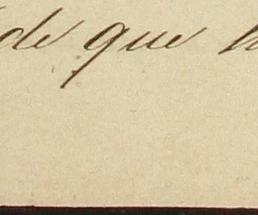 de que